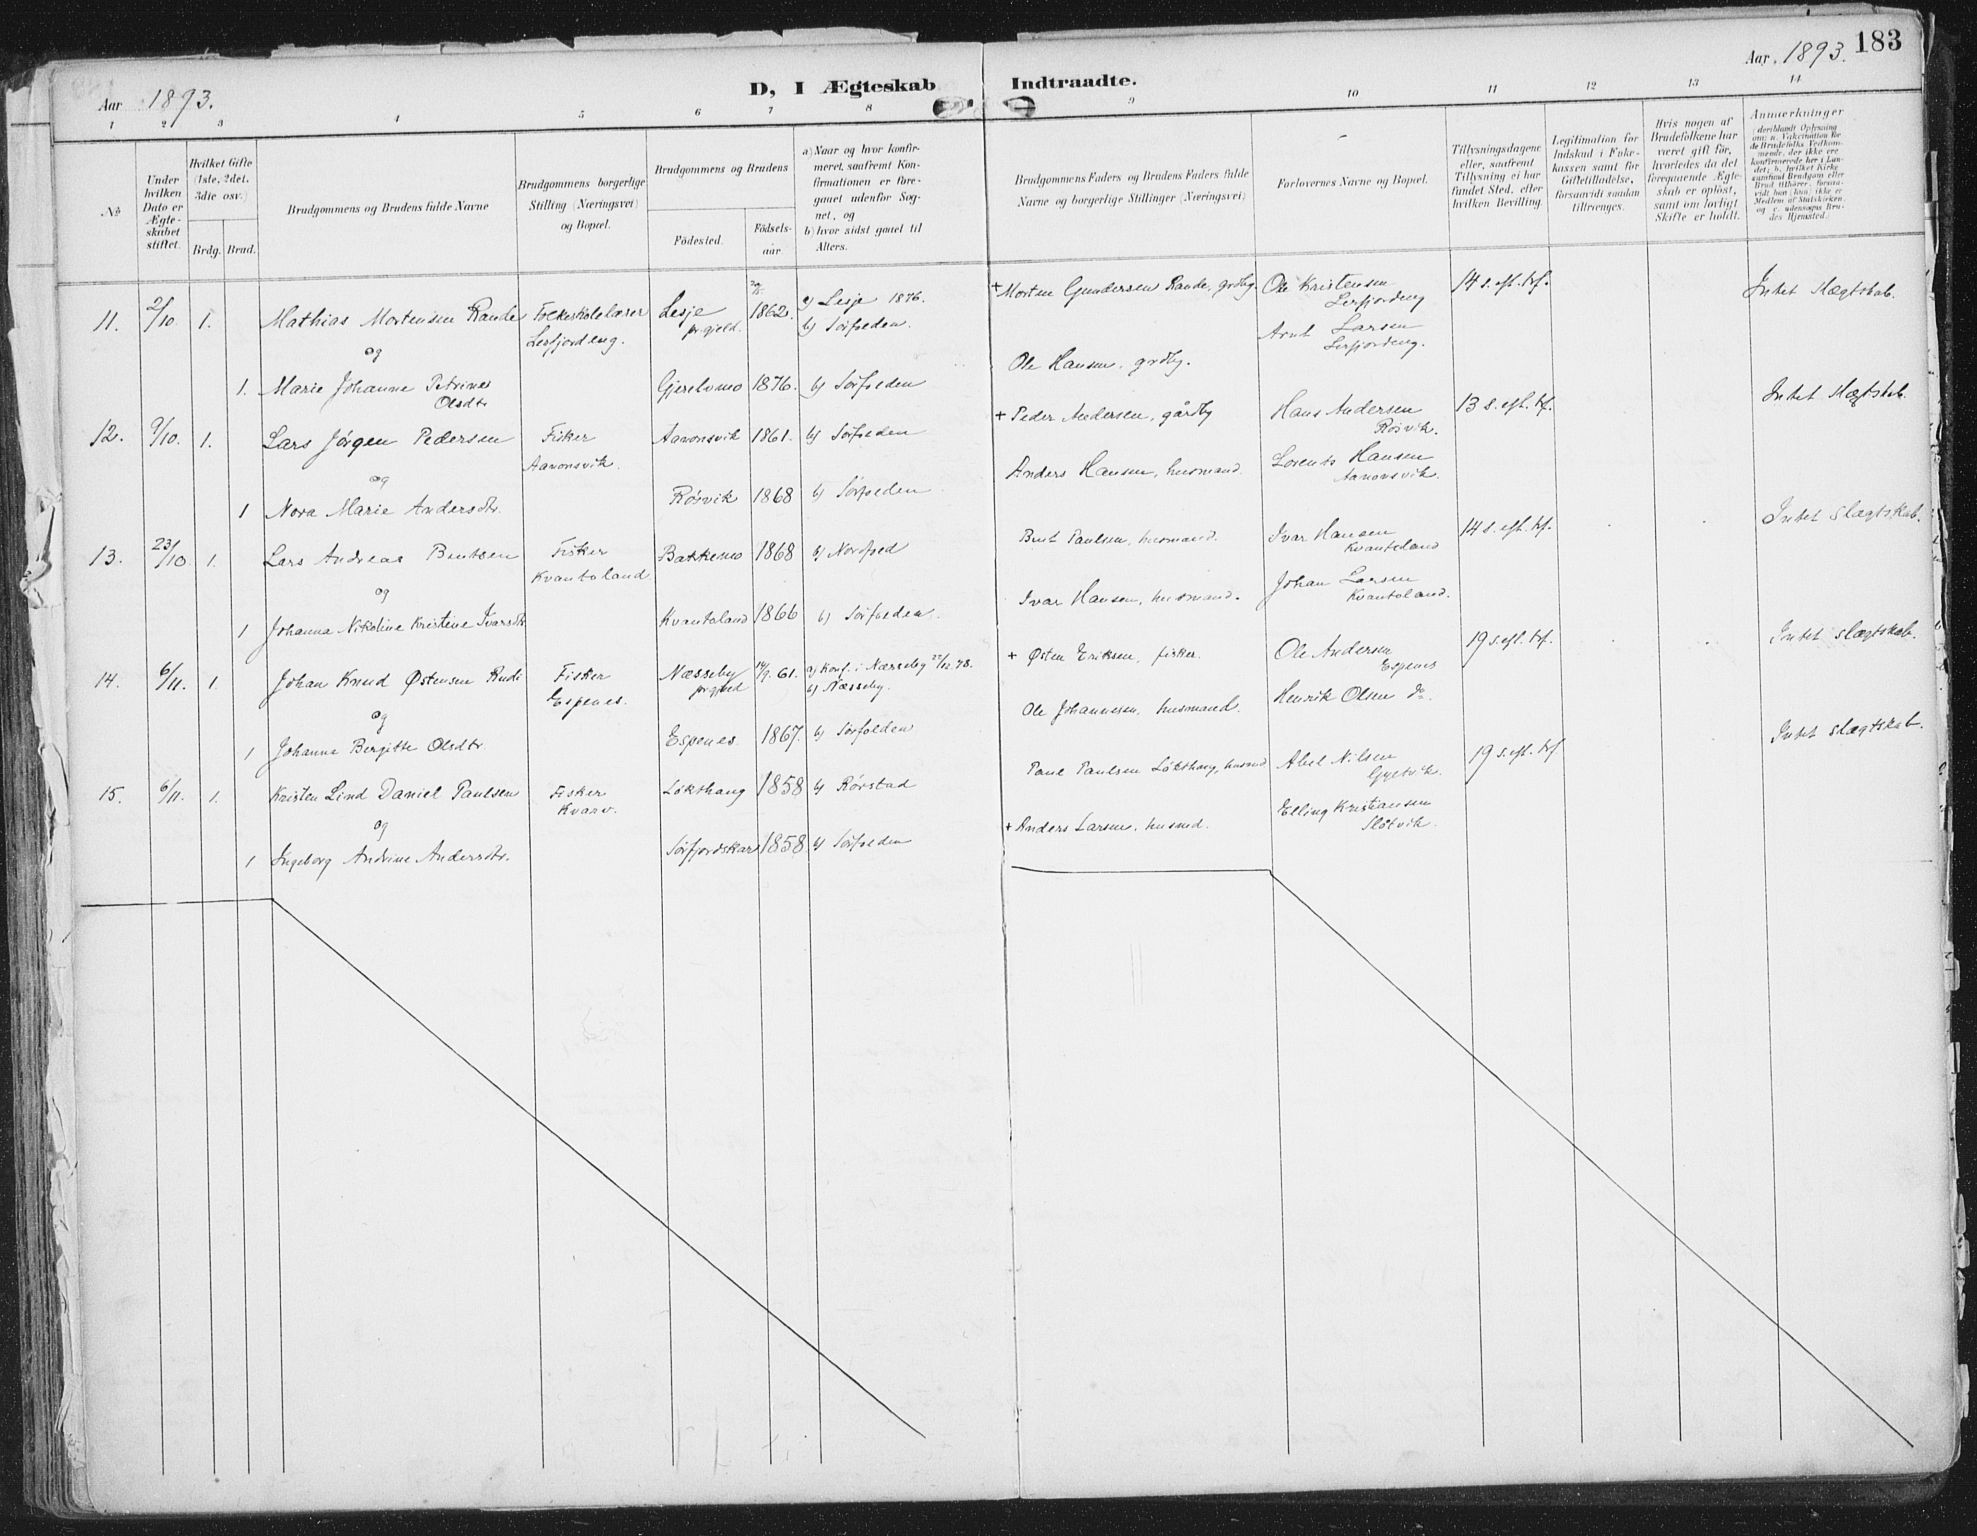 183
Aar 1893.
D, I Ægteskab Indtraadte.
Aar 1893.
1 2 3 4 5 6 7 8 9 10 11 12 13 14
No
Under hvilken Dato er Ægteskabet stiftet.
Hvilket Gifte (1ste, 2det, 3die osv.)
Brdg. Brud.
Brudgommens og Brudens fulde Navne
Brudgommens borgerlige Stilling (Næringsvei) og Bopæl.
Brudgommens og Brudens
Födested.
Födsels-aar
a) Naar og hvor konfirmeret, saafremt Konfirmationen er foregaaet udenfor Sognet, og
b) hvor sidst gaaet til Alters.
Brudgommens Faders og Brudens Faders fulde Navne og borgerlige Stillinger (Næringsvei)
Forlovernes Navne og Bopæl.
Tillysningsdagene eller, saafremt Tillysning ei har fundet Sted, efter hvilken Bevilling.
Legitimation for Indskud i Enkekassen samt for Giftetilladelse, forsaavidt saadan tiltrænges.
Hvis nogen af Brudefolkene har været gift för, hvorledes da det foregaaende Ægteskab er oplöst, samt om lovligt Skifte er holdt.
Anmærkninger
11. 2/10 1. Mathias Mortensen Rande Folkeskolelærer Lesje 1862. a) Lesje 1876. + Morten Gundersen Rande, grdbg. Ole Kristensen 14 s. eft. trf. Intet slægtskab.
Leifjordeng. prgjeld. b) Sörfolden. Leifjordeng
og Arnt Larsen
Leifjordeng.
1. Marie Johanne Petrine Olsdtr Gjerelvmo 1876. b) Sörfolden Ole Hansen, grdbg.
12. 9/10. 1. Lars Jörgen Pedersen Fisker Aanonsvik 1861. b) Sörfolden + Peder Andersen, gårdbg Hans Andersen 13 s. eft. trf. Intet slægtskab.
Aanonsvik. Rösvik.
og Lorents Hansen
Aanonsvik.
1 Nora Marie Andersdtr. Rösvik 1868 b) Sörfolden Anders Hansen, husmand.
13. 23/10 1. Lars Andreas Bentsen Fisker Bakkemo 1868 b) Nordfold Bent Paulsen, husmand. Ivar Hansen 14 s. eft. trf. Intet slægtskab.
Kvantoland Kvantoland
og Johan Larsen
Kvantoland.
1 Johanna Nikoline Kristine Ivarsdtr Kvantoland 1866 b) Sörfolden. Ivar Hansen, husmand.
14. 6/11. 1. Johan Knud Östensen Rudi Fisker Næsseby 14/9. 61. a) Konf. i Næsseby 22/12. 78. + Östen Eriksen, fisker. Ole Andersen 19 s. eft. trf. Intet slægtskab.
Espenes. prgjeld b) Næsseby. Espenes
og Henrik Olsen do.
1 Johanna Bergitte Olsdtr. Espenes 1867. b) Sörfolden Ole Johannesen, husmand.
15. 6/11. 1. Kristen Lind Daniel Paulsen Fisker Lökthaug 1858 b) Rörstad Paul Paulsen Lökthaug, husmd Abel Nilsen 19 s. eft. trf Intet slægtskab.
Kvarv. Gyltvik.
og Elling Kristiansen
Slötvik.
1 Ingeborg Andrine Andersdtr. Sörfjordskar 1858 b) Sörfolden + Anders Larsen, husmd.